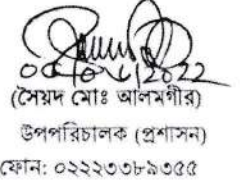 (সৈয়দ মোঃ আলমগীর)
উপপরিচালক (প্রশাসন)
ফোন: ০২২২৩৩৮৯৩৫৫